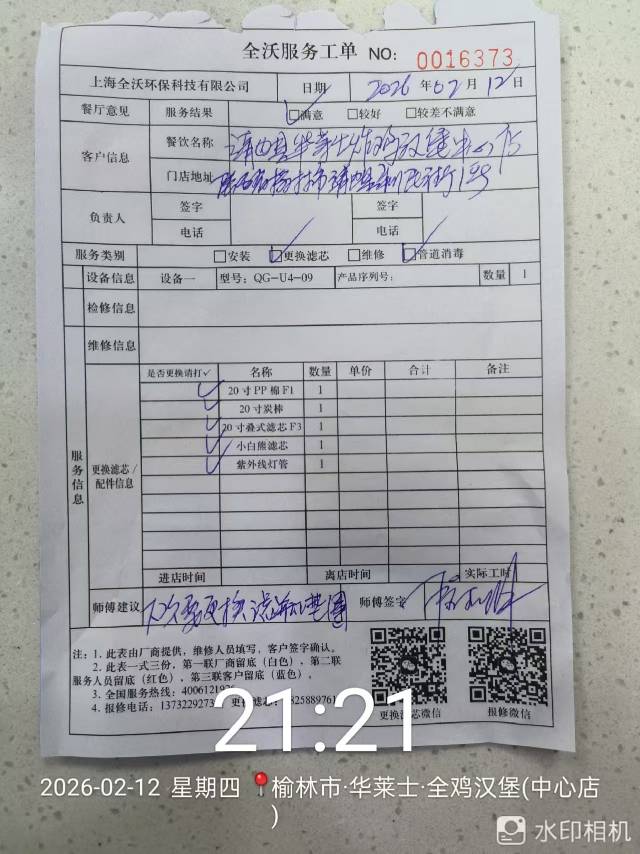 全沃服务工单 NO: 0016373
上海全沃环保科技有限公司 日期 2026年02月12日
餐厅意见 服务结果 ☑满意 □较好 □较差不满意
客户信息 餐饮名称 靖边县华莱士炸鸡汉堡中心店
门店地址 陕西省榆林市靖边县
负责人 签字 签字
电话 电话
服务类别 □安装 ☑更换滤芯 □维修 ☑管道消毒
设备信息 设备一 型号: QG-U4-09 产品序列号: 数量 1
检修信息
维修信息
服务信息
更换滤芯/配件信息
是否更换请打✓ 名称 数量 单价 合计 备注
✓ 20寸PP棉F1 1
✓ 20寸炭棒 1
✓ 20寸叠式滤芯F3 1
✓ 小白熊滤芯 1
✓ 紫外线灯管 1
进店时间 离店时间 实际工时
师傅建议 下次需更换 师傅签字
注: 1. 此表由厂商提供, 维修人员填写, 客户签字确认。
2. 此表一式三份, 第一联厂商留底(白色), 第二联
服务人员留底(红色), 第三联客户留底(蓝色)。
3. 全国服务热线: 4006121
4. 报修电话: 1373229273 更换滤芯: 825889761
更换滤芯微信 报修微信
21:21
2026-02-12 星期四 榆林市·华莱士·全鸡汉堡(中心店
)
水印相机